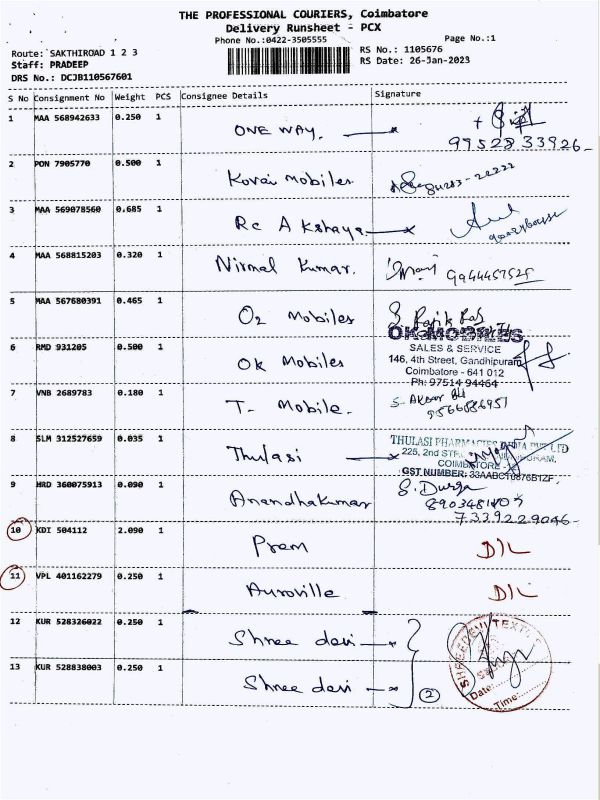 THE PROFESSIONAL COURIERS, Coimbatore
Delivery Runsheet - PCX
Phone No.:0422-3505555
Page No.:1
Route: SAKTHIROAD 1 2 3
Staff: PRADEEP
DRS No.: DCJB110567601
RS No.: 1105676
RS Date: 26-Jan-2023
S No Consignment No Weight PCS Consignee Details Signature
1 MAA 568942633 0.250 1 ONE WAY.
9952833926-
2 PON 7905770 0.500 1 Kovai Mobiles
3 MAA 569078560 0.685 1 Rc Akshaya
4 MAA 568815203 0.320 1 Nirmal Kumar.
5 MAA 567680391 0.465 1 O2 Mobiles
6 RMD 931205 0.500 1 OK Mobiles
OK MOBILES
SALES & SERVICE
146, 4th Street, Gandhipuram
Coimbatore - 641 012
Ph: 97514 94464
7 VNB 2689783 0.180 1 T- Mobile.
8 SLM 312527659 0.035 1 Thulasi
THULASI PHARMACIES INDIA PVT LTD
225, 2nd
COIMBATORE
GST NUMBER: 33AABC
9 HRD 360075913 0.090 1 Anandhakumar S. Durga
8903481803
7339229046-
10 KDI 504112 2.090 1 Prem D/L
11 VPL 401162279 0.250 1 Auroville D/L
12 KUR 528326022 0.250 1 Shree devi
13 KUR 528838003 0.250 1 Shree devi 2
SHREE DEVI TEXTILE
Date:
Time: